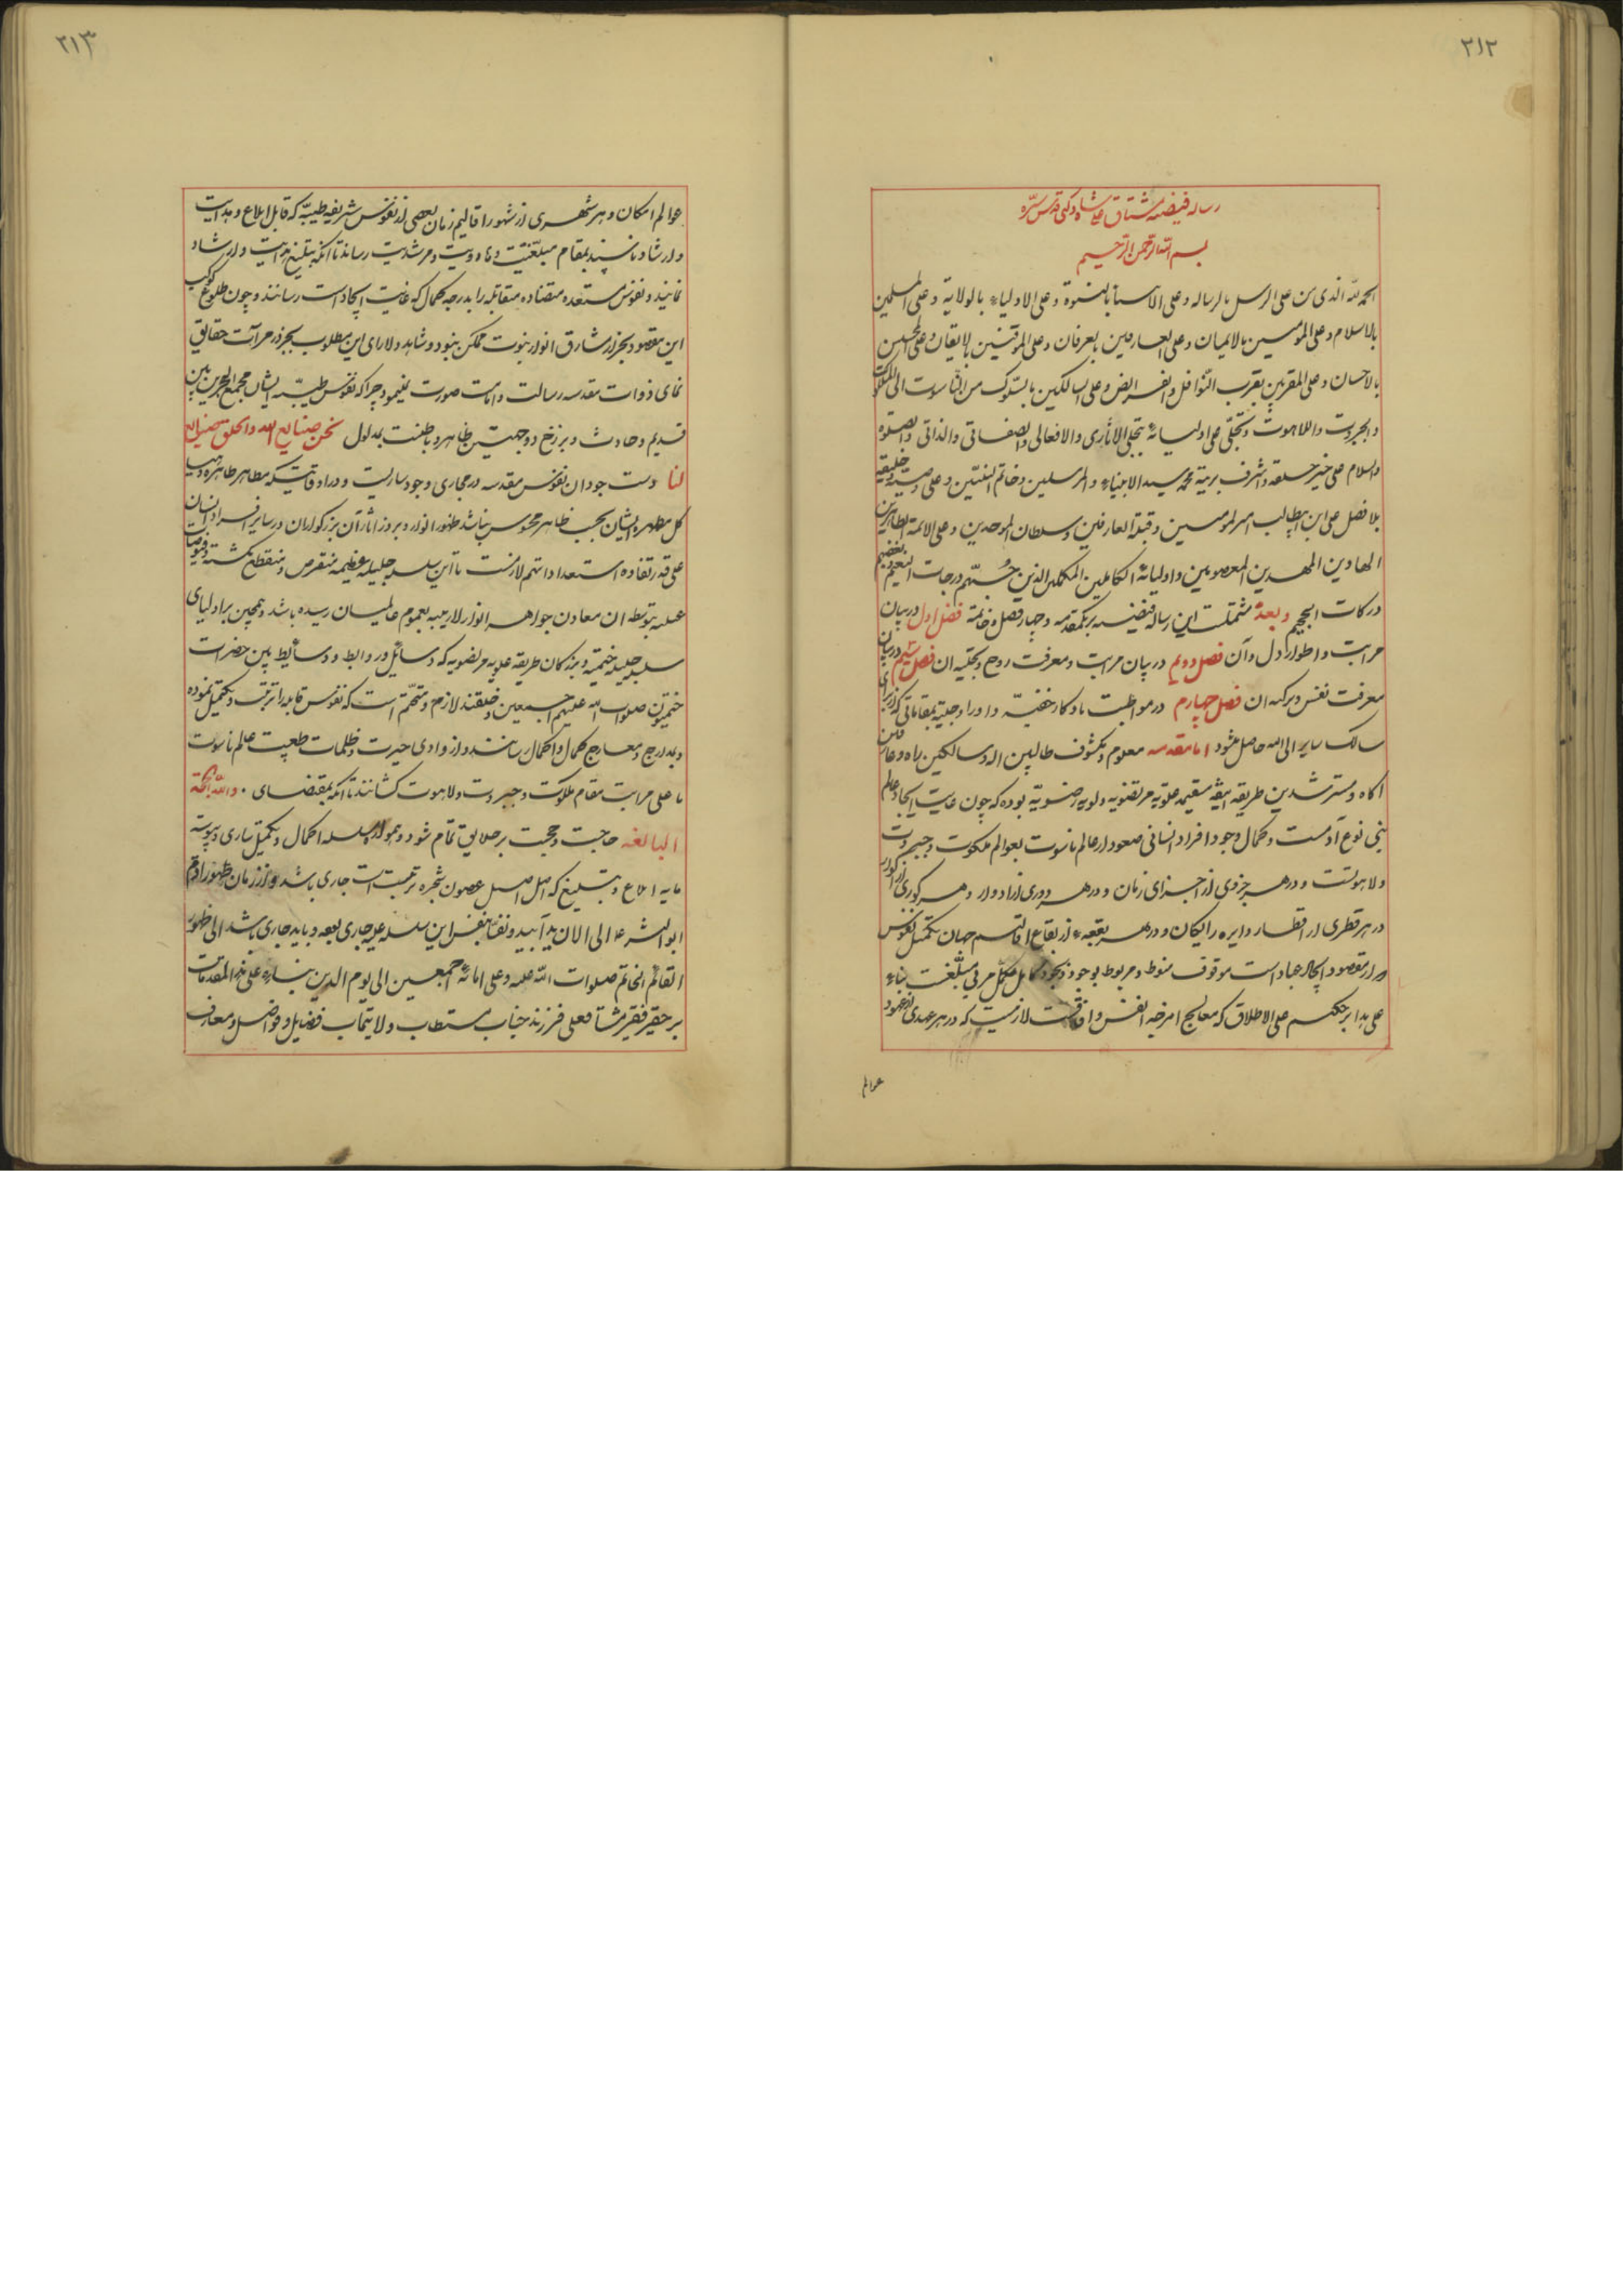 ٢١٢
رساله فیضیه مشتاق علیشاه دکنی قدس سره
بسم الله الرحمن الرحیم
الحمد لله الذی من علی الرسل بالرساله و علی الانبیا بالنبوة و علی الاولیاء بالولایة و علی المسلمین
بالاسلام و علی المومنین بالایمان و علی العارفین بالعرفان و علی الموقنین بالایقان و علی المحسنین
بالاحسان و علی المقربین بقرب النوافل و الفرایض و علی السالکین بالسلوک من الناسوت الی الملکوت
و الجبروت و اللاهوت و تجلی علی اولیائه بتجلی الاثاری و الافعالی و الصفاتی و الذاتی و الصلوة
والسلام علی خیر خلقه و اشرف بریته محمد سید الانبیاء و المرسلین و خاتم النبیین و علی وصیه و خلیفته
بلا فصل علی ابن ابیطالب امیر المومنین و قبلة العارفین و سلطان الموحدین و علی الائمة الطاهرین
الهادین المهدیین المعصومین و اولیائه الکاملین المکملین الذین حبهم درجات النعیم و بغضهم
درکات الجحیم و بعد مشتملست این رساله فیضیه بریکمقدمه و چهار فصل و خاتمه فصل اول در بیان
مراتب و اطوار دل و آن فصل دویم در بیان مراتب و معرفت روح و تجلیه ان فصل سیم در بیان
معرفت نفس و تزکیه ان فصل چهارم در مواظبت باذکار خفیه و اوراد جلیه بمقاماتی که از برای
سالک سایر الی الله حاصل میشود اما مقدمه معلوم و مکشوف طالبین اله و سالکین راه و عارفین
اکاه و مسترشدین طریقه انیقه مستقیمه علویه مرتضویه و لویه رضویه بوده که چون غایت ایجاد عالم
بنی نوع آدمست و کمال وجود افراد انسانی صعود از عالم ناسوت بعوالم ملکوت و جبروت
و لاهوتست و در هر جزوی از اجزای زمان و در هر دوری از ادوار و هر کوری از اکوار
در هر قطری از اقطار دایره رایکان و در هر بقعه از بقاع اقالیم جهان تکمیل نفوس
که از مقصود ایجاد عباد است موقوف منوط و مربوط بوجود ذیجود کامل مکمل مربی مبلغست بناء
علی هذا بر حکیم علی الاطلاق که معالج امرضه انفس و افاقست لازمست که در هر عهدی از عهود
عوالم
٢١٣
عوالم امکان و هر شهری از شهور اقالیم زمان بعضی از نفوس شریفه طیبه که قابل ابلاغ و هدایت
و ارشاد باشند بمقام مبلغیت و هادویت و مرشدیت رساند تا انکه بتبلیغ هدایت و ارشاد
نمایند و نفوس مستعده متضاده متقابله را بدرجه کمال که غایت ایجاد است رسانند و چون طلوع کوکب
این مقصود بجز از مشارق انوار نبوت ممکن نبود و شاهد دلارای این مطلوب بجز در مرآت حقایق
نمای ذوات مقدسه رسالت و امامت صورت نمینمود چرا که نفوس طیبه ایشان مجمع البحرین بین
قدیم و حادث و برزخ دو جهتین ظاهر و باطنست بمدلول نحن صنایع الله و الخلق صنایع
لنا دست جود ان نفوس مقدسه در مجاری وجود ساریست و در اوقاتیکه مظاهر طاهره و
کل مطهره ایشان بحسب ظاهر محسوس نباشد ظهور انوار و بروز اثار آن بزرکواران در سایر افراد انسان
علی قدر تفاوه استعداداتهم لازمست تا این سلسله جلیله عظیمه منقرض و منقطع نکشته و فیوضات
علیه بتوسط ان معادن جواهر انوار لاریبیه بعموم عالمیان رسیده باشد و همچنین بر اولیای
سلسله جلیله ختمیه و بزرکان طریقه علویه مرتضویه که وسائل و روابط و وسائیط بین حضرات
ختمیون صلوات الله علیهم اجمعین و خلقند لازم و متحتم است که نفوس قابله را تربیت و تکمیل نموده
و بمدارج و معارج کمال و اکمال رسانند و از وادی حیرت و ظلمات طبیعت عالم ناسوت
با علی مراتب مقام ملکوت و جبروت و لاهوت کشانند تا انکه بمقتضای و لله الحجة
البالغه حاجت و حجت بر خلایق تمام شود و همواره سلسله اکمال و تکمیل ساری و پیوسته
مایه ابلاغ و تبلیغ که اصل اصیل غصون شجره تربیت است جاری باشد و از زمان ظهور ادم
ابوالبشر ع الی الان یداً بید و نفساً بنفس این سلسله علیه جاری بوده و باید جاری باشد الی ظهور
القائم الخاتم صلوات الله علیه و علی ابائه اجمعین الی یوم الدین بناء علی هذه المقدمات
بر حقیر فقیر مشتاقعلی فرزند جناب مستطاب ولایتماب فضایل و فواضل و معارف